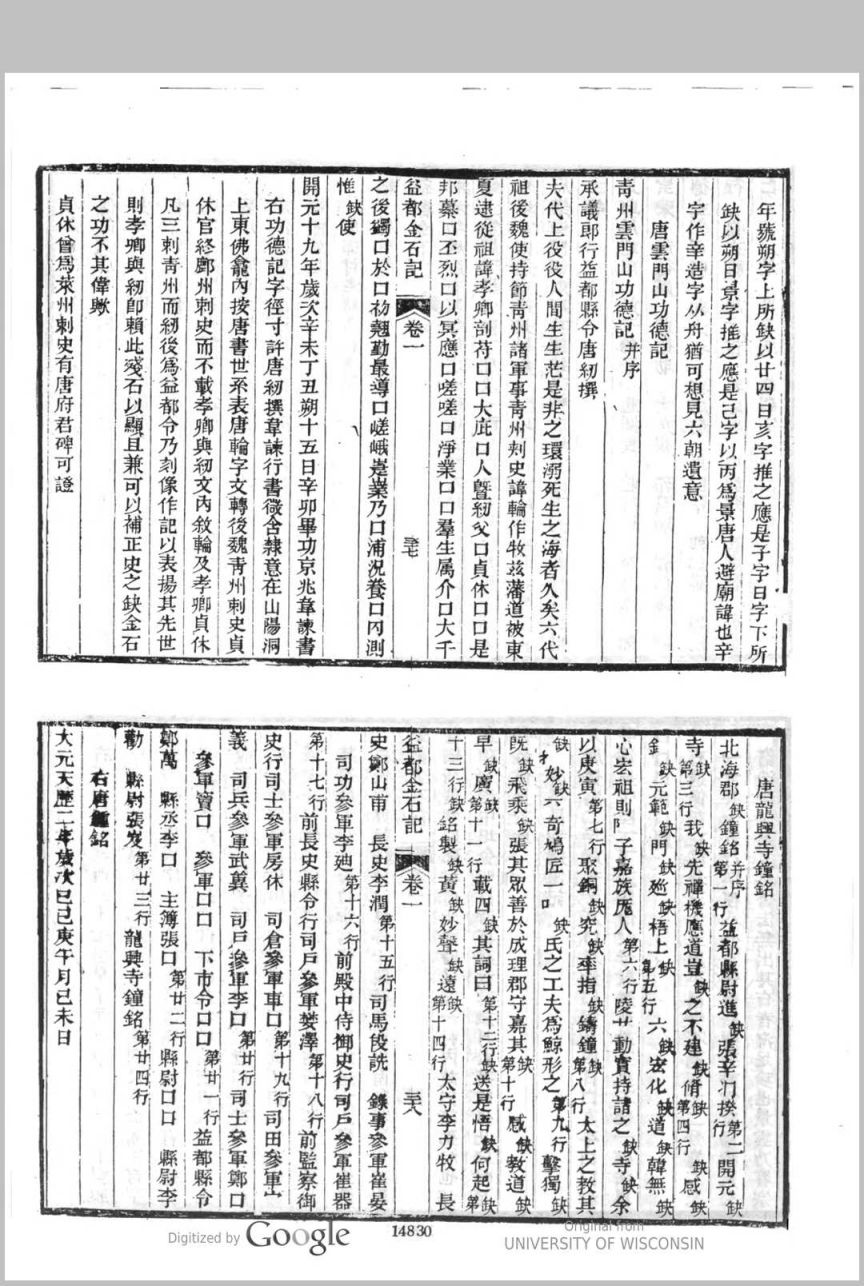 年號朔字上所缺以廿四日亥字推之應是子字日字下所
缺以朔日景字推之應是己字以丙爲景唐人避廟諱也辛
字作辛造字从舟猶可想見六朝遺意
唐雲門山功德記
青州雲門山功德記并序
承議郎行益都縣令唐紉撰
夫代上役役人間生生茫是非之環溺死生之海者久矣六代
祖後魏使持節青州諸軍事青州刺史諱輪作牧茲藩道被東
夏逮從祖諱孝卿剖苻口口大庇口人暨紉父口貞休口口是
邦纂口丕烈口以冥應口嗟嗟口淨業口口羣生属介口大千
益都金石記 卷一 三七
之後蠲口於口礽翹勤最導口嵯峨嶷業乃口浦況養口罔測
惟缺使
開元十九年歲次辛未丁丑朔十五日辛卯畢功京兆韋諫書
右功德記字徑寸許唐紉撰韋諫行書微含隸意在山陽洞
上東佛龕內按唐書世系表唐輪字文轉後魏青州刺史貞
休官終鄜州刺史而不載孝卿與紉文內敘輪及孝卿貞休
凡三刺青州而紉後爲益都令乃刻像作記以表揚其先世
則孝卿與紉卽賴此殘石以顯且兼可以補正史之缺金石
之功不其偉歟
貞休曾爲萊州刺史有唐府君碑可證
唐龍興寺鐘銘
北海郡缺鐘銘并序第一行益都縣尉進缺張辛揆第二行開元缺
寺缺第三行我缺先禪機應道豈缺之不建缺脩缺第四行缺感缺
缺元範缺門缺廵缺梧上缺第五行六缺宏化缺道缺韓無缺
心宏祖則子嘉族厐人第六行陵廿動寳持諸之缺寺缺余
以庚寅第七行聚銅缺究缺率指缺鑄鐘缺第八行太上之教其
缺妙缺六奇鳩匠一口缺氏之工夫爲鯨形之第九行擊獨缺
既缺飛乘缺張其眾善於成理郡守嘉其缺第十行感缺教道缺
早缺廣缺第十一行載四缺其詞曰第十二行缺送是悟缺何起缺第
十三行缺銘製缺黃缺妙聲缺遠缺第十四行太守李力牧 長
益都金石記 卷一 三八
史鄭山甫 長史李潤第十五行司馬段詵 錄事參軍崔晏
司功參軍李廸第十六行前殿中侍御史行司戶參軍崔器
第十七行前長史縣令行司戶參軍婁澤第十八行前監察御
史行司士參軍房休 司倉參軍車口第十九行司田參軍
義 司兵參軍武冀 司戶參軍李口第廿行司士參軍鄭口
參軍竇口 參軍口口 下市令口口第廿一行益都縣令
鄭萬 縣丞李口 主簿張口第廿二行縣尉口口 縣尉李
勸 縣尉張岌第廿三行龍興寺鐘銘第廿四行
右唐鐘銘
大元天歷二年歲次巳己庚午月己未日
14830
Digitized by Google
Original from
UNIVERSITY OF WISCONSIN